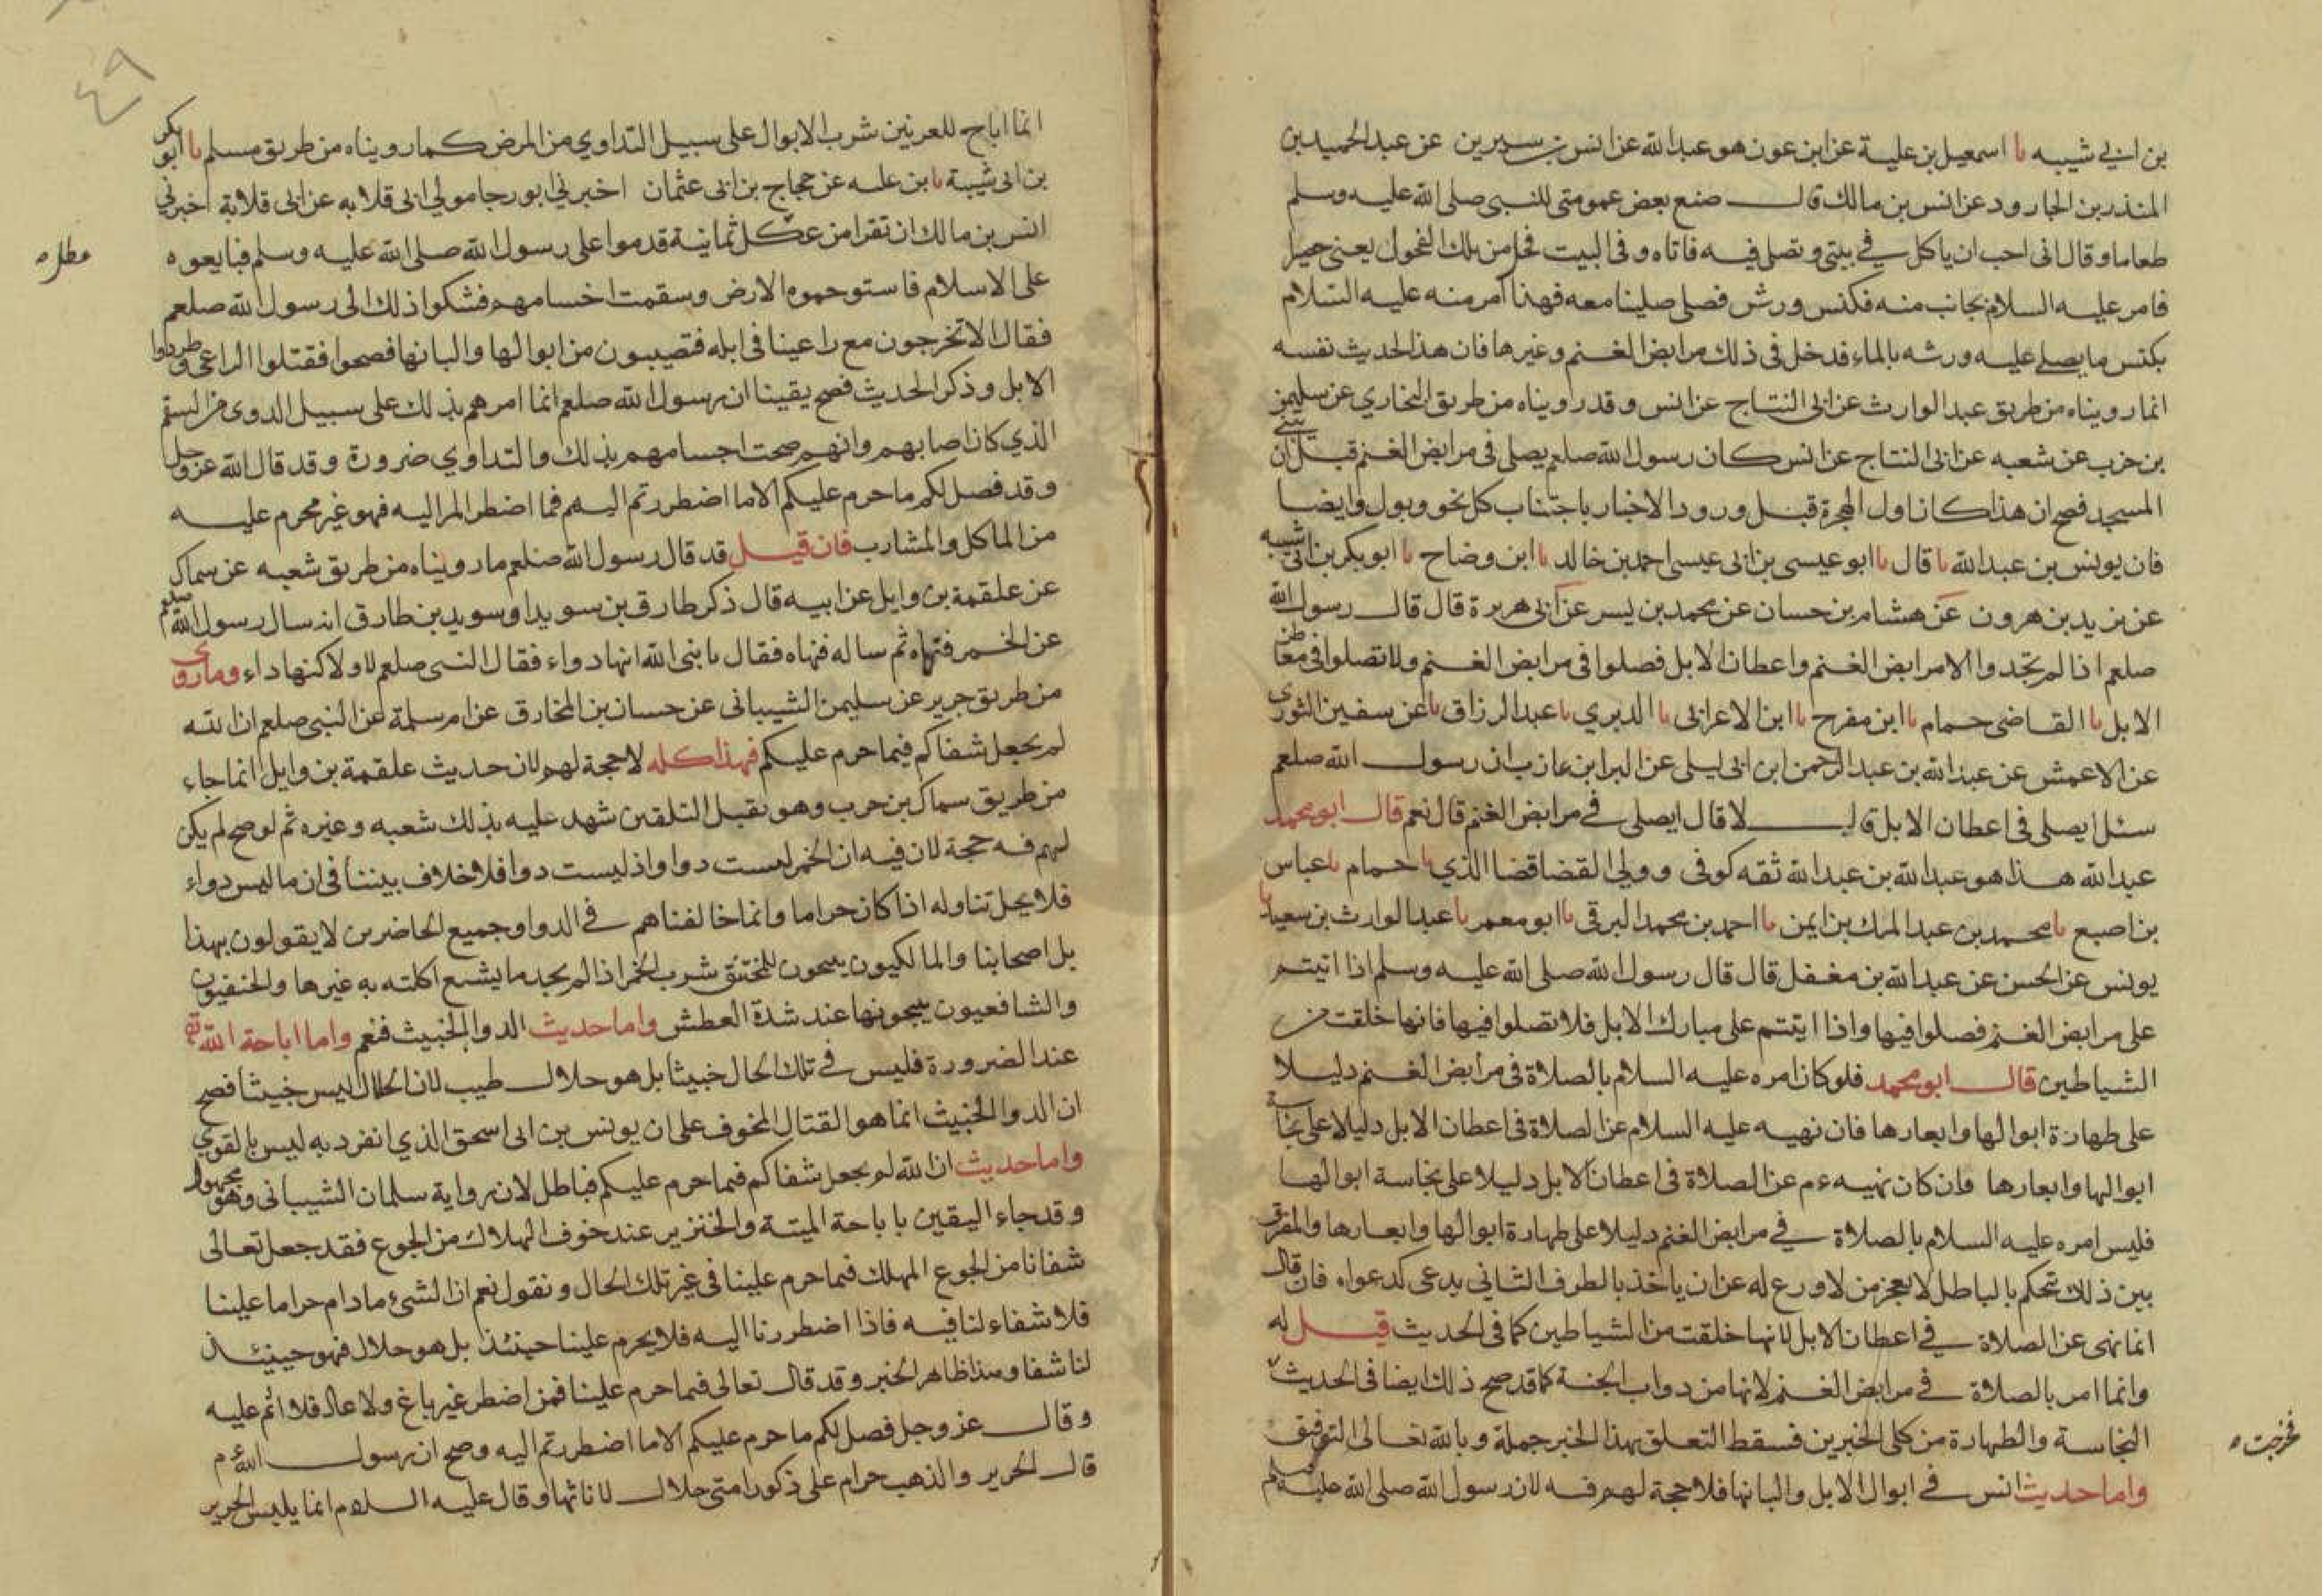 بن ابي شيبه نا اسمعيل بن علية عن ابن عون هو عبد الله عن انس بن سيرين عن عبد الحميد بن
المنذر بن الجارود عن انس بن مالك قال صنع بعض عمومتي للنبي صلى الله عليه وسلم
طعاما وقال اني احب ان ياكل في بيتي وتصلى فيه فاتاه وفي البيت فحل من تلك الفحول يعني حصيرا
فامر عليه السلام بجانب منه فكنس ورش فصلى صلينا معه فهذا آمر منه عليه السلام
بكنس ما يصلى عليه ورشه بالماء فدخل في ذلك مرابض الغنم وغيرها فان هذا الحديث نفسه
انما رويناه من طريق عبد الوارث عن ابي النتاج عن انس وقد رويناه من طريق البخاري عن سليمن
بن حرب عن شعبه عن ابي النتاج عن انس كان رسول الله صلعم يصلى في مرابض الغنم قبل ان يبنى
المسجد فصح ان هذا كان اول الهجرة قبل ورود الاخبار باجتناب كل نحو وبول وايضا
فان يونس بن عبد الله نا قال نا ابو عيسى بن ابي عيسى احمد بن خالد نا ابن وضاح نا ابو بكر بن ابي شيبه
عن يزيد بن هرون عن هشام بن حسان عن محمد بن يسر عن ابي هريرة قال قال رسول الله
صلعم اذا لم تجدوا الا مرابض الغنم واعطان الابل فصلوا في مرابض الغنم ولا تصلوا في معاطن
الابل نا القاضي حمام نا ابن مفرح نا ابن الاعرابي نا الدبري نا عبد الرزاق نا عن سفين الثوري
عن الاعمش عن عبد الله بن عبد الرحمن ابن ابي ليلى عن البرا ابن عازب ان رسول الله صلعم
سئل ايصلى في اعطان الابل قال لا قال ايصلى في مرابض الغنم قال نعم قال ابو محمد
عبد الله هذا هو عبد الله بن عبد الله ثقه كوفي وولي القضا قضا الذي نا حمام نا عباس
بن اصبع نا محمد بن عبد الملك بن ايمن نا احمد بن محمد البرقي نا ابو معمر نا عبد الوارث بن سعيد نا
يونس عن الحسن عن عبد الله بن مغفل قال قال رسول الله صلى الله عليه وسلم اذا اتيتم
على مرابض الغنم فصلوا فيها واذا اتيتم على مبارك الابل فلا تصلوا فيها فانها خلقت من
الشياطين قال ابو محمد فلو كان امره عليه السلام بالصلاة في مرابض الغنم دليلا
على طهارة ابوالها وابعارها فان نهيه عليه السلام عن الصلاة في اعطان الابل دليلا على نجاسة
ابوالها وابعارها وان كان نهيه ءم عن الصلاة في اعطان الابل دليلا على نجاسة ابوالها
فليس امره عليه السلام بالصلاة في مرابض الغنم دليلا على طهارة ابوالها وابعارها والمفرق
بين ذلك تحكم بالباطل لا يعجز من لا ورع له عن ان ياخذ بالطرف الثاني يدعي كدعواه فان قال
انما نهى عن الصلاة في اعطان الابل لانها خلقت من الشياطين كما في الحديث قيل له
وانما امر بالصلاة في مرابض الغنم لانها من دواب الجنة كما قد صح ذلك ايضا في الحديث
النجاسة والطهارة من كلى الخبرين فسقط التعلق بهذا الخبر جملة وبالله تعالى التوفيق
فخرجت ه
واما حديث انس في ابوال الابل والبانها فلا حجة لهم فيه لان رسول الله صلى الله عليه
انما اباح للعرنين شرب الابوال على سبيل التداوي من المرض كما رويناه من طريق مسلم نا ابو بكر
بن ابي شيبة نا بن عليه عن حجاج بن ابي عثمان اخبرني ابو رجا مولي ابي قلابه عن ابي قلابة اخبرني
انس بن مالك ان نفرا من عكل ثمانية قدموا على رسول الله صلى الله عليه وسلم فبايعوه
مطلره
على الاسلام فاستوحموه الارض وسقمت اخسامهم فشكوا ذلك الى رسول الله صلعم
فقال الا تخرجون مع راعينا في ابله فتصيبون من ابوالها والبانها فصحوا فقتلوا الراعي وطردوا
الابل وذكر الحديث فصح يقينا ان رسول الله صلعم انما امرهم بذلك على سبيل الدوى من السقم
الذي كان اصابهم وانهم صحت اجسامهم بذلك والتداوي ضرورة وقد قال الله عز وجل
وقد فصل لكم ما حرم عليكم الا ما اضطررتم اليه فما اضطر المر اليه فهو غير محرم عليه
من الماكل والمشارب فان قيل قد قال رسول الله صلعم ما رويناه من طريق شعبه عن سماك
عن علقمة بن وايل عن ابيه قال ذكر طارق بن سويد او سويد بن طارق انه سال رسول الله صلعم
عن الخمر فنهاه ثم ساله فنهاه فقال يا نبي الله انها دواء فقال النبي صلعم لا ولاكنها داء وما روى
من طريق جرير عن سليمن الشيباني عن حسان بن المخارق عن ام سلمة عن النبي صلعم ان الله
لم يجعل شفاكم فيما حرم عليكم فهذا كله لا حجة لهم لان حديث علقمة بن وايل انما جاء
من طريق سماك بن حرب وهو يقبل التلقين شهد عليه بذلك شعبه وغيره ثم لو صح لم يكن
لهم فيه حجة لان فيه ان الخمر ليست دوا واذ ليست دوا فلا خلاف بيننا في ان ما ليس دواء
فلا يحل تناوله اذا كان حراما وانما خالفناهم في الدوا وجميع الحاضرين لا يقولون بهذا
بل اصحابنا والمالكيون يبيحون للمختنق شرب الخمر اذا لم يجد ما يشيع اكلته به غيرها والحنفيون
والشافعيون يبيحونها عند شدة العطش واما حديث الدوا الخبيث فنعم واما اباحة الله تع
عند الضرورة فليس في تلك الحال خبيثا بل هو حلال طيب لان الحلال ليس خبيثا فصح
ان الدوا الخبيث انما هو القتال المخوف على ان يونس بن ابي اسحق الذي انفرد به ليس بالقوي
واما حديث ان الله لم يجعل شفاكم فيما حرم عليكم فباطل لان رواية سلمان الشيباني وهو مجهول
وقد جاء اليقين باباحة الميتة والخنزير عند خوف الهلاك من الجوع فقد جعل تعالى
شفانا من الجوع المهلك فيما حرم علينا في غير تلك الحال ونقول نعم ان الشيء ما دام حراما علينا
فلا شفاء لنا فيه فاذا اضطررنا اليه فلا يحرم علينا حينئذ بل هو حلال فهو حينئذ
لنا شفا وهذا ظاهر الخبر وقد قال تعالى فيما حرم علينا فمن اضطر غير باغ ولا عاد فلا اثم عليه
وقال عز وجل فصل لكم ما حرم عليكم الا ما اضطررتم اليه وصح ان رسول الله ءم
قال الحرير والذهب حرام على ذكور امتي حلال لاناثها وقال عليه السلام انما يلبس الحرير
٤٩